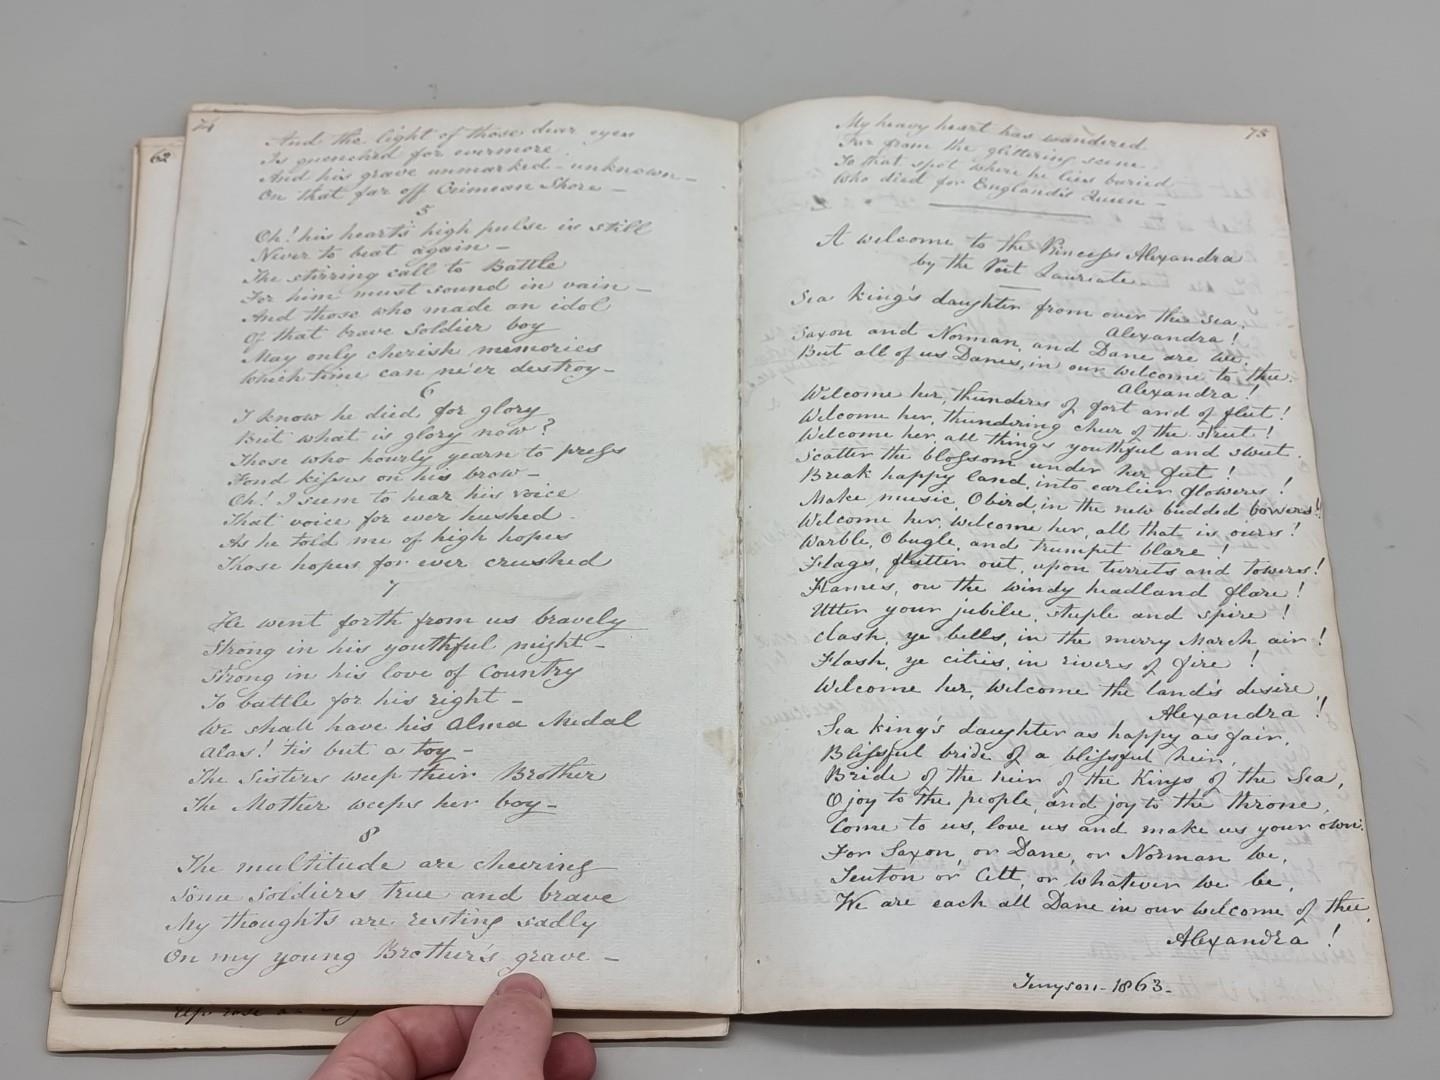 74
And the light of those dear eyes
Is quenched for evermore.
And his grave unmarked - unknown -
On that far off Crimean Shore -
5
Oh! his heart's high pulse is still
Never to beat again -
The stirring call to Battle
For him must sound in vain -
And those who made an idol
Of that brave Soldier boy
May only cherish memories
Which time can ne'er destroy -
6
I know he died for glory
But what is glory now?
Those who hourly yearn to press
Fond kisses on his brow -
Oh! I seem to hear his voice
That voice for ever hushed.
As he told me of high hopes
Those hopes for ever crushed
7
He went forth from us bravely
Strong in his youthful might -
Strong in his love of Country
To battle for his right -
We shall have his Alma Medal
Alas! 'tis but a toy -
The Sisters weep their Brother
The Mother weeps her boy -
8
The multitude are cheering
Some Soldiers true and brave
My thoughts are resting sadly
On my young Brother's grave -
62
75
My heavy heart has wandered
Far from the glittering scene
To that spot where he lies buried
Who died for England's Queen -
A welcome to the Princess Alexandra
by the Poet Laureate
Sea King's daughter from over the Sea,
Alexandra!
Saxon and Norman, and Dane are we,
But all of us Danes, in our welcome to thee.
Alexandra!
Welcome her, thunders of fort and of fleet!
Welcome her, thundering cheer of the street!
Welcome her, all things youthful and sweet.
Scatter the blossom under her feet!
Break happy land, into earlier flowers!
Make music, O bird, in the new budded bowers!
Welcome her, welcome her, all that is ours!
Warble, O bugle, and trumpet blare!
Flags, flutter out, upon turrets and towers!
Flames, on the windy headland flare!
Utter your jubilee, steeple and spire!
Clash, ye bells, in the merry March air!
Flash, ye cities, in rivers of fire!
Welcome her, welcome the land's desire,
Alexandra!
Sea king's daughter as happy as fair,
Blissful bride of a blissful heir,
Bride of the heir of the Kings of the Sea,
O joy to the people, and joy to the throne,
Come to us, love us and make us your own.
For Saxon, or Dane, or Norman we,
Teuton or Celt, or whatever we be,
We are each all Dane in our welcome of thee,
Alexandra!
Tennyson - 1863 -